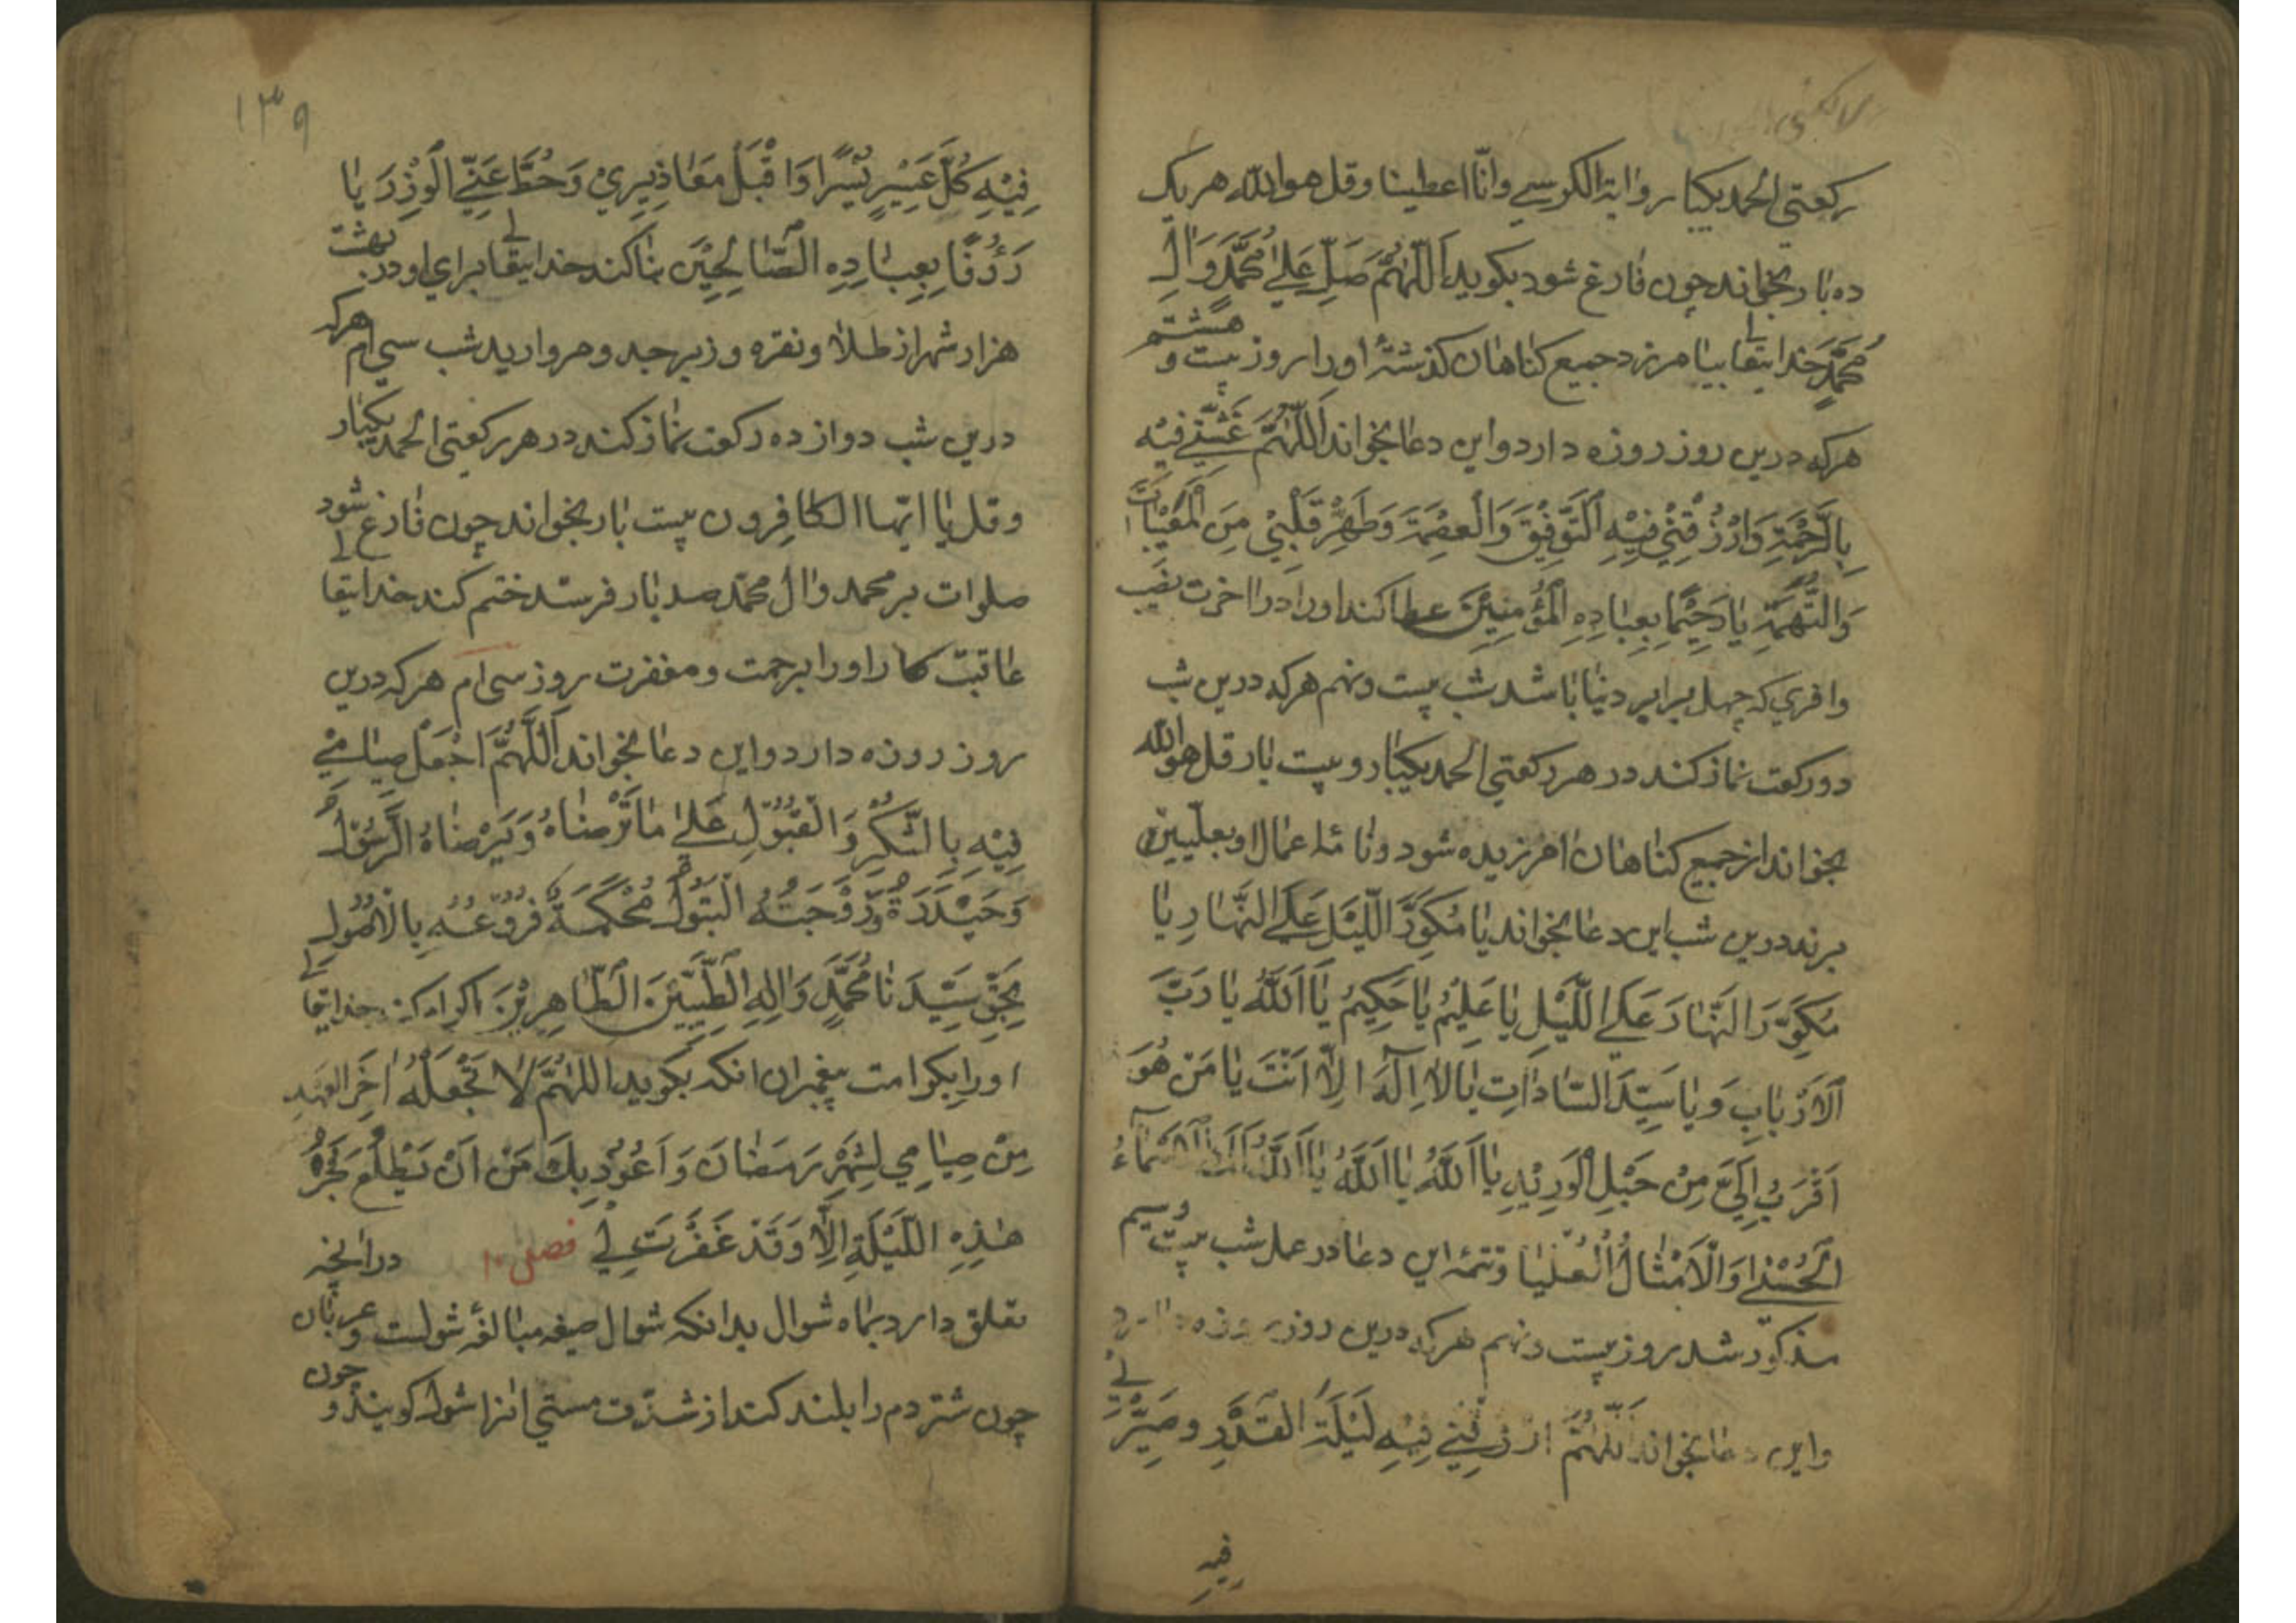 ركعتی الحمد یکبار واية الكرسي وانّا اعطینا وقل هوالله هریک
ده بار بخواند چون فارغ شود بکوید اَللّٰهُمَّ صَلِّ عَلیٰ مُحَمَّدٍ وَاٰلِ
مُحَمَّدٍ خدایتعالی بیامرزد جمیع کناهان کذشتۀ اورا روز بیست و هشتم
هرکه درین روز روزه دارد واین دعا بخواند اَللّٰهُمَّ غَشِّنِي فيْهِ
بِالرَّحْمَةِ وَارْزُقْنِيْ فِيْهِ التَّوْفِيْقَ وَالْعِصْمَةَ وَطَهِّرْ قَلْبِيْ مِنَ
وَالتُّهَمَةِ يٰا رَحِيْمًا بِعِبٰادِهِ الْمُؤْمِنِيْنَ عطا کند اورا در اخرت نصیب
وافري که چهل برابر دنیا باشد شب بیست ونهم هرکه درین شب
دو رکعت نماز کند در هر رکعتي الحمد یکبار وبیست بار قل هوالله
بخواند از جمیع کناهان امرزیده شود ونامۀ اعمال او بعلیین
برند درین شب این دعا بخواند يٰا مُكَوِّرَ اللَّيْلِ عَلَى النَّهٰارِ يٰا
مُكَوِّرَ النَّهٰارِ عَلَى اللَّيْلِ يٰا عَلِيْمُ يٰا حَكِيْمُ يٰا اَللّٰهُ يٰا رَبَّ
الْاَرْبٰابِ وَ يٰا سَيِّدَ السّٰادٰاتِ يٰا لٰا اِلٰهَ اِلّٰا اَنْتَ يٰا مَنْ هُوَ
اَقْرَبُ اِلَيَّ مِنْ حَبْلِ الْوَرِيْدِ يٰا اَللّٰهُ يٰا اَللّٰهُ يٰا اَللّٰهُ لَكَ الْاَسْمٰآءُ
الْحُسْنٰی وَالْاَمْثٰالُ الْعُلْيٰا وتتمۀ این دعا در عمل شب بیست وسیم
مذکور شد روز بیست ونهم هرکه درین روز روزه دارد
واین دعا بخواند اَللّٰهُمَّ ارْزُقْنِي فِيْهِ لَيْلَةَ الْقَدْرِ وصَيِّرْ لِي
فِيْهِ
١٣٩
فِيْهِ كُلَّ عَسِيْرٍ يُسْرًا وَاقْبَلْ مَعٰاذِيْرِيْ وَحُطَّ عَنِّي الْوِزْرَ يٰا
رَؤُفًا بِعِبٰادِهِ الصّٰالِحِيْنَ بنا کند خدایتعالی برای او در بهشت
هزار شهر از طلا ونقره وزبرجد ومروارید شب سی ام هرکه
درین شب دوازده رکعت نماز کند در هر رکعتی الحمد یکبار
وقل یا ایّها الکافرون بیست بار بخواند چون فارغ شود
صلوات بر محمد وال محمّد صد بار فرستد ختم کند خدایتعالی
عاقبت کار اورا برحمت ومغفرت روز سی ام هرکه درین
روز روزه دارد واین دعا بخواند اَللّٰهُمَّ اجْعَلْ صِيٰامِيْ
فِيْهِ بِالشُّكْرِ وَالْقَبُوْلِ عَلیٰ مٰا تَرْضٰاهُ وَيَرْضٰاهُ الرَّسُوْلُ
وَحَيْدَرَةُ وَزَوْجَتُهُ الْبَتُوْلُ مُحْكَمَةً فُرُوْعُهُ بِالْاُصُوْلِ
بِحَقِّ سَيِّدِنٰا مُحَمَّدٍ وَاٰلِهِ الطَّيِّبِيْنَ الطّٰاهِرِيْنَ اکرام کند خدایتعالی
اورا بکرامت پیغمبران انکه بکوید اللّٰهُمَّ لٰا تَجْعَلْهُ اٰخِرَ الْعَهْدِ
مِنْ صِيٰامِي لِشَهْرِ رَمَضٰانَ وَاَعُوْذُ بِكَ مَنْ اَنْ يَطْلُعَ فَجْرُ
هٰذِهِ اللَّيْلَةِ اِلّٰا وَقَدْ غَفَرْتَ لِي فصل ١٠ در انچه
تعلق دارد بماه شوال بدانکه شوال صیغه مبالغۀ شولست وعربان
چون شتر دم را بلند کند از شدّت مستی انرا شول کویند و چون